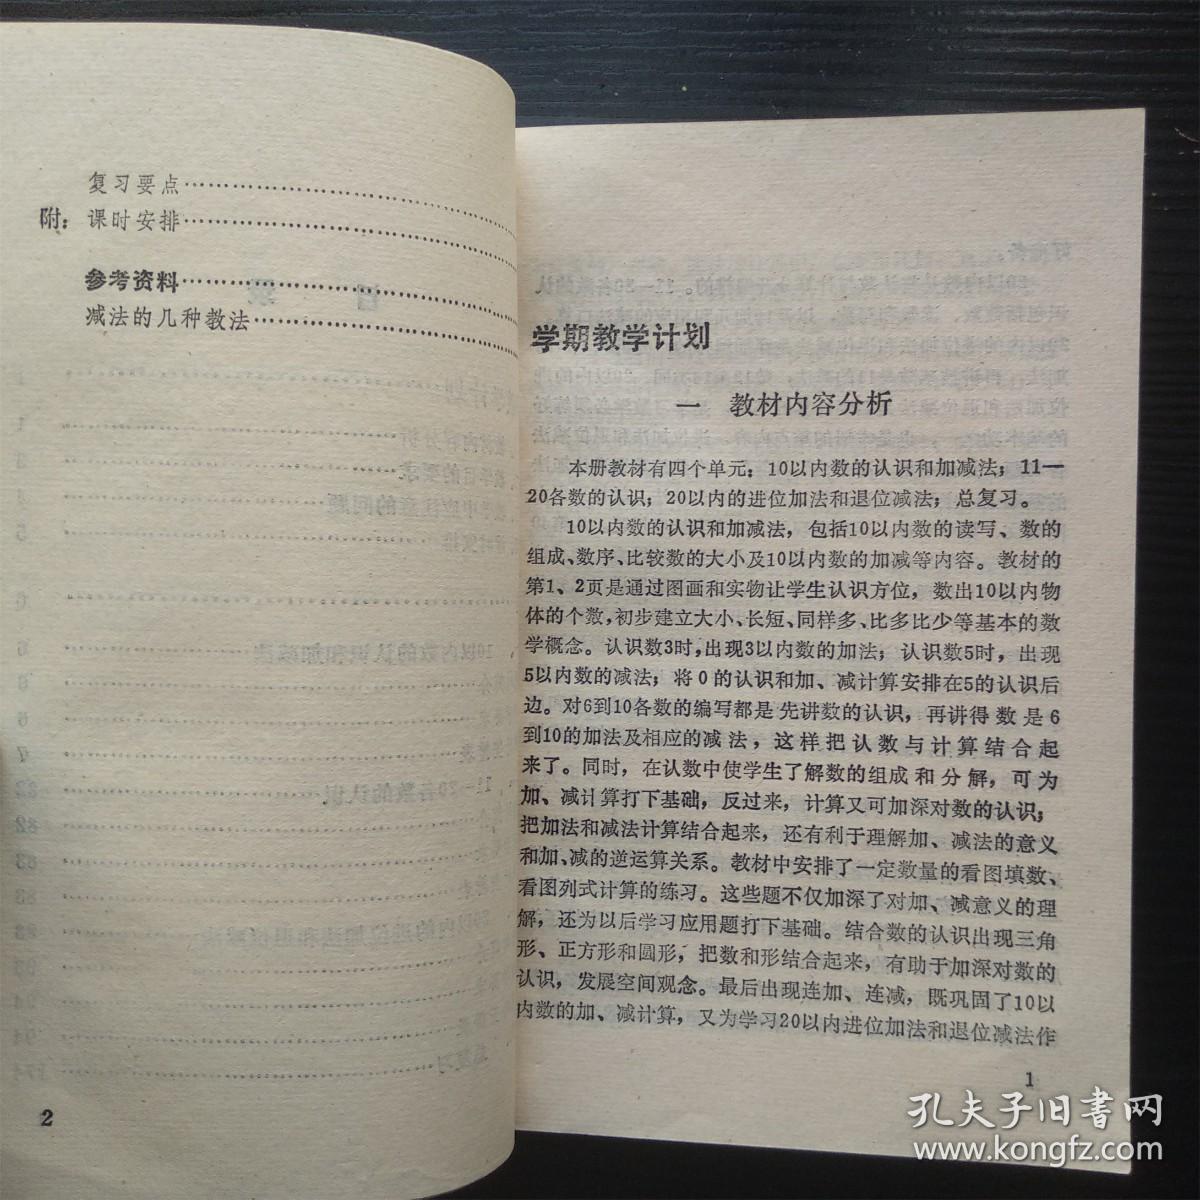 复习要点
附：课时安排
参考资料
减法的几种教法
2
学期教学计划
一　教材内容分析
本册教材有四个单元：10以内数的认识和加减法；11—
20各数的认识；20以内的进位加法和退位减法；总复习。
10以内数的认识和加减法，包括10以内数的读写、数的
组成、数序、比较数的大小及10以内数的加减等内容。教材的
第1、2页是通过图画和实物让学生认识方位，数出10以内物
体的个数，初步建立大小、长短、同样多、比多比少等基本的数
学概念。认识数3时，出现3以内数的加法；认识数5时，出现
5以内数的减法；将0的认识和加、减计算安排在5的认识后
边。对6到10各数的编写都是先讲数的认识，再讲得数是6
到10的加法及相应的减法，这样把认数与计算结合起
来了。同时，在认数中使学生了解数的组成和分解，可为
加、减计算打下基础，反过来，计算又可加深对数的认识；
把加法和减法计算结合起来，还有利于理解加、减法的意义
和加、减的逆运算关系。教材中安排了一定数量的看图填数、
看图列式计算的练习。这些题不仅加深了对加、减意义的理
解，还为以后学习应用题打下基础。结合数的认识出现三角
形、正方形和圆形，把数和形结合起来，有助于加深对数的
认识，发展空间观念。最后出现连加、连减，既巩固了10以
内数的加、减计算，又为学习20以内进位加法和退位减法作
1
孔夫子旧书网
www.kongfz.com